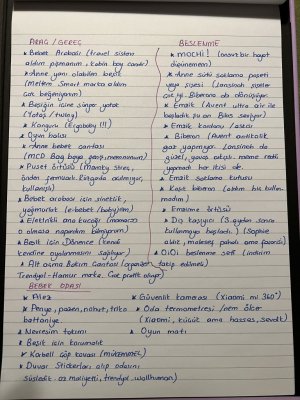 ARAÇ / GEREÇ
* Bebek Arabası (travel sistem
aldım pişmanım, kabin boy candır)
* Anne yanı olabilen beşik
(Meltem Smart marka aldım
çok beğeniyorum)
* Beşiğin içine sünger yatak
(Yataş / tulüy)
* Kanguru (Ergobaby !!!)
* Oyun halısı
* Anne bebek çantası
(MCD Bag baya geniş, memnunum)
* Puset örtüsü
önden fermuarlı.
kullanışlı)
* Bebek arabası için sineklik,
yağmurluk (e-bebek / babyjem)
* Elektrikli ana kucağı
olmasa napardım bilmiyorum)
* Beşik için Dönence (kendi
kendine oyalanmasını sağlıyor)
* Alt açma Bakım Çantası (organizer
Trendyol - Hamur marka. Çok pratik oluyor)
BESLENME
* MOCHİ !
düşünemem)
* Anne sütü saklama poşeti
veya şişesi (Lansinoh şişeler
* Emzik (Avent ultra air ile
başladık şu an Bibs seviyor)
* Emzik kordonu / askısı
* Biberon (Avent antikolik
gaz yapmıyor. Lansinoh da
güzel, yavaş akışlı. meme reddi
yapmadı her ikisi de)
* Emzik saklama kutusu
* Kaşık biberon (aldım hiç kullan-
madım)
* Emzirme örtüsü
* Diş kaşıyıcı (3. aydan sonra
kullanmaya başladı. (Sophie
aldık, maalesef pahalı ama favorisi)
* OiOi beslenme seti (indirim
takip edilmeli)
BEBEK ODASI
* Pike, pazen, nohut, triko
battaniye
* Nevresim takımı
* Beşik için korumalık
* Korbell çöp kovası (MÜKEMMEL)
* Duvar Stickerları alıp odasını
süsledik. az maliyetli, trendyol, wallhuman)
* Güvenlik kamerası (Xiaomi mi 360°)
* Oda termometresi / nem ölçer
(Xiaomi, küçük ama hassas, sevdik)
* Oyun matı